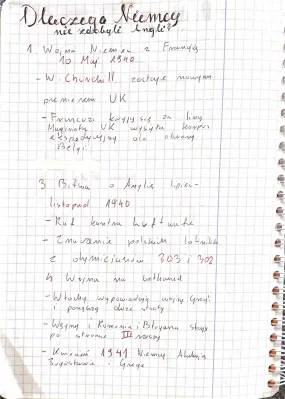 Dlaczego Niemcy
nie zdobyli Anglii?
1. Wojna Niemiec z Francją
10 Maj 1940
- W Churchill zostaje nowym
premierem UK
- Francuzi kryją się za linią
Maginota, UK wysyła korpus
ekspedycyjny dla obrony
Belgi
3 Bitwa o Anglię lipiec-
listopad 1940
- RAF kontra Luftwaffe
- Znaczenie polskich lotników
z dywizjonów 303 i 302
4 Wojna na Bałkanach
- Włochy wypowiadają wojnę Grecji
i ponoszą duże straty
- Węgry i Rumunia i Bułgaria stają
po stronie III rzeszy
- Kwiecień 1941 Niemcy
Jugosławię i Grecję